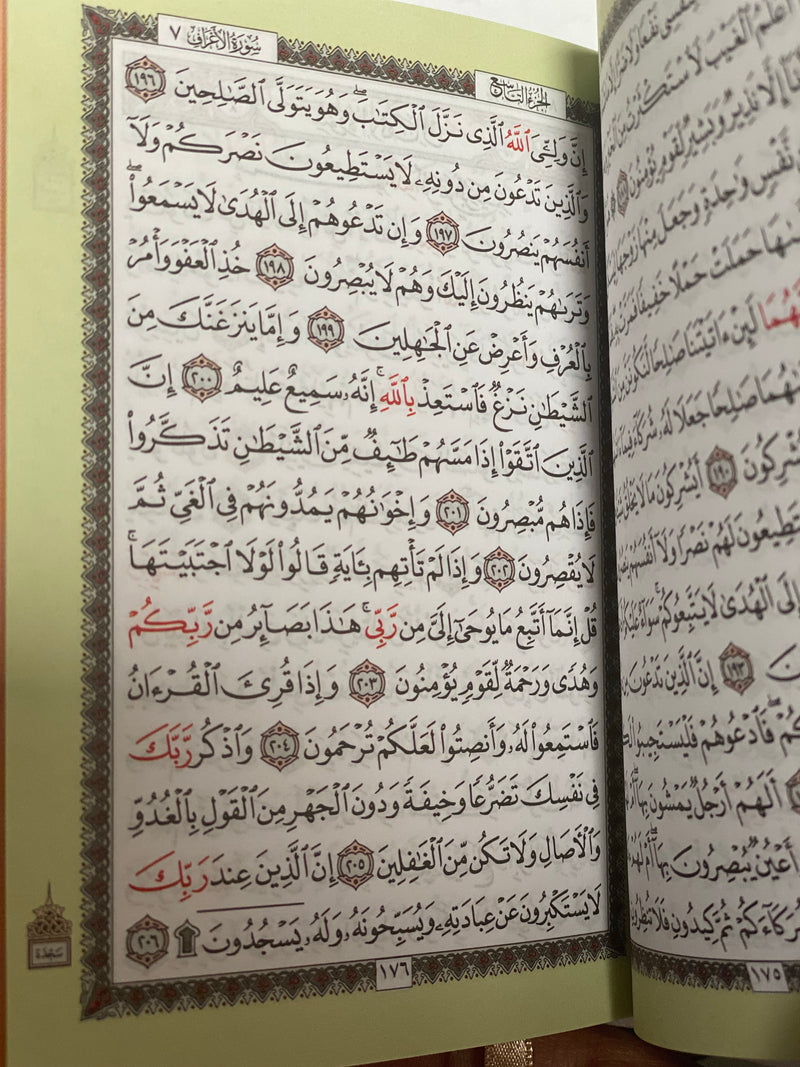 سُورَةُ الْأَعْرَافِ ٧
الجُزْءُ التَّاسِعُ
إِنَّ وَلِـِّۧيَ ٱللَّهُ ٱلَّذِى نَزَّلَ ٱلْكِتَٰبَ ۖ وَهُوَ يَتَوَلَّى ٱلصَّٰلِحِينَ ١٩٦
وَٱلَّذِينَ تَدْعُونَ مِن دُونِهِۦ لَا يَسْتَطِيعُونَ نَصْرَكُمْ وَلَآ
أَنفُسَهُمْ يَنصُرُونَ ١٩٧ وَإِن تَدْعُوهُمْ إِلَى ٱلْهُدَىٰ لَا يَسْمَعُوا۟ ۖ
وَتَرَىٰهُمْ يَنظُرُونَ إِلَيْكَ وَهُمْ لَا يُبْصِرُونَ ١٩٨ خُذِ ٱلْعَفْوَ وَأْمُرْ
بِٱلْعُرْفِ وَأَعْرِضْ عَنِ ٱلْجَٰهِلِينَ ١٩٩ وَإِمَّا يَنزَغَنَّكَ مِنَ
ٱلشَّيْطَٰنِ نَزْغٌ فَٱسْتَعِذْ بِٱللَّهِ ۚ إِنَّهُۥ سَمِيعٌ عَلِيمٌ ٢٠٠ إِنَّ
ٱلَّذِينَ ٱتَّقَوْا۟ إِذَا مَسَّهُمْ طَٰٓئِفٌ مِّنَ ٱلشَّيْطَٰنِ تَذَكَّرُوا۟
فَإِذَا هُم مُّبْصِرُونَ ٢٠١ وَإِخْوَٰنُهُمْ يَمُدُّونَهُمْ فِى ٱلْغَىِّ ثُمَّ
لَا يُقْصِرُونَ ٢٠٢ وَإِذَا لَمْ تَأْتِهِم بِـَٔايَةٍ قَالُوا۟ لَوْلَا ٱجْتَبَيْتَهَا ۚ
قُلْ إِنَّمَآ أَتَّبِعُ مَا يُوحَىٰٓ إِلَىَّ مِن رَّبِّى ۚ هَٰذَا بَصَآئِرُ مِن رَّبِّكُمْ
وَهُدًى وَرَحْمَةٌ لِّقَوْمٍ يُؤْمِنُونَ ٢٠٣ وَإِذَا قُرِئَ ٱلْقُرْءَانُ
فَٱسْتَمِعُوا۟ لَهُۥ وَأَنصِتُوا۟ لَعَلَّكُمْ تُرْحَمُونَ ٢٠٤ وَٱذْكُر رَّبَّكَ
فِى نَفْسِكَ تَضَرُّعًا وَخِيفَةً وَدُونَ ٱلْجَهْرِ مِنَ ٱلْقَوْلِ بِٱلْغُدُوِّ
وَٱلْءَاصَالِ وَلَا تَكُن مِّنَ ٱلْغَٰفِلِينَ ٢٠٥ إِنَّ ٱلَّذِينَ عِندَ رَبِّكَ
لَا يَسْتَكْبِرُونَ عَنْ عِبَادَتِهِۦ وَيُسَبِّحُونَهُۥ وَلَهُۥ يَسْجُدُونَ ۩ ٢٠٦
سَجْدَة
١٧٦
نَفْعًا وَلَا
أَعْلَمُ ٱلْغَيْبَ لَٱسْتَكْثَرْتُ مِنَ
إِلَّا نَذِيرٌ وَبَشِيرٌ لِّقَوْمٍ يُؤْمِنُونَ
نَّفْسٍ وَٰحِدَةٍ وَجَعَلَ مِنْهَا زَوْجَهَا
حَمَلَتْ حَمْلًا خَفِيفًا فَمَرَّتْ
لَئِنْ ءَاتَيْتَنَا صَٰلِحًا لَّنَكُونَنَّ مِنَ
صَٰلِحًا جَعَلَا لَهُۥ شُرَكَآءَ فِيمَآ
يُشْرِكُونَ ١٩٠ أَيُشْرِكُونَ مَا لَا يَخْلُقُ
لَهُمْ نَصْرًا وَلَآ أَنفُسَهُمْ
إِلَى ٱلْهُدَىٰ لَا يَتَّبِعُوكُمْ ۚ سَوَآءٌ عَلَيْكُمْ
١٩٣ إِنَّ ٱلَّذِينَ تَدْعُونَ مِن
فَٱدْعُوهُمْ فَلْيَسْتَجِيبُوا۟
أَلَهُمْ أَرْجُلٌ يَمْشُونَ بِهَآ
أَعْيُنٌ يُبْصِرُونَ بِهَآ ۖ أَمْ لَهُمْ
ثُمَّ كِيدُونِ فَلَا
١٧٥